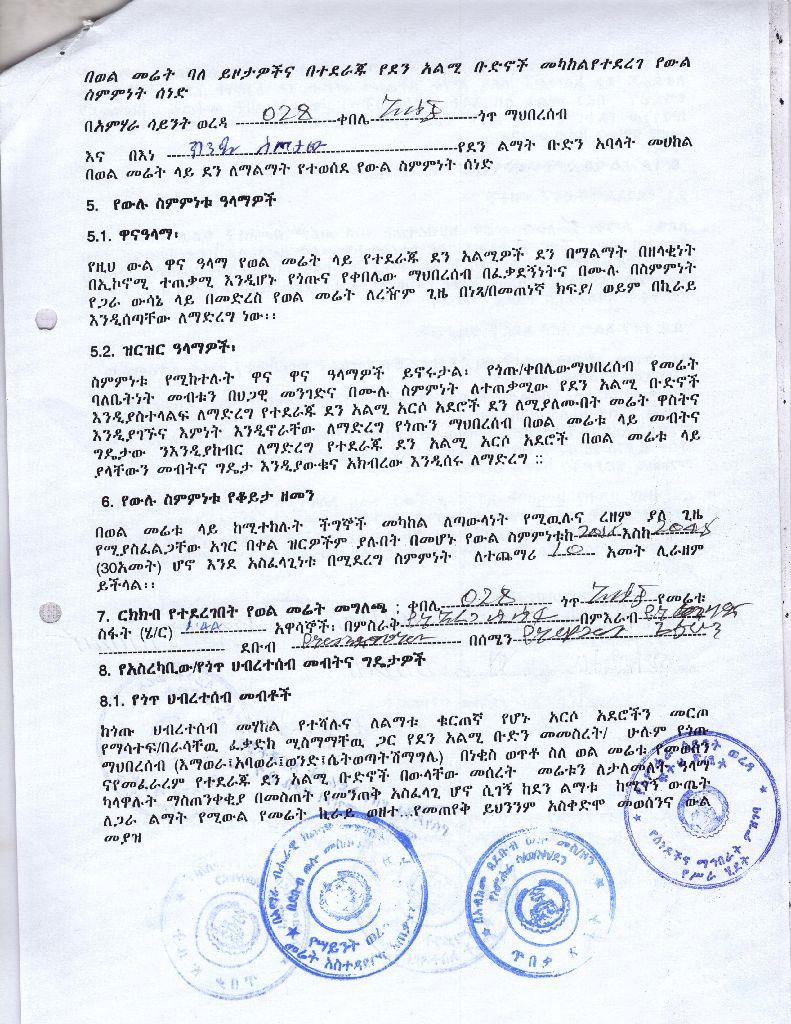 በወል መሬት ባለ ይዞታዎችና በተደራጁ የደን አልሚ ቡድኖች መካከልየተደረገ የውል
ስምምነት ሰነድ
በአምሃራ ሳይንት ወረዳ 028 ቀበሌ ጎጥ ማህበረሰብ
እና በእነ የደን ልማት ቡድን አባላት መሀከል
በወል መሬት ላይ ደን ለማልማት የተወሰደ የውል ስምምነት ሰነድ
5. የውሉ ስምምነቱ ዓላማዎች
5.1. ዋናዓላማ፡
የዚህ ውል ዋና ዓላማ የወል መሬት ላይ የተደራጁ ደን አልሚዎች ደን በማልማት በዘላቂነት
በኢኮኖሚ ተጠቃሚ እንዲሆኑ የጎጡና የቀበሌው ማህበረሰብ በፈቃደኝነትና በሙሉ በስምምነት
የጋራ ውሳኔ ላይ በመድረስ የወል መሬት ለረዥም ጊዜ በነጻ/በመጠነኛ ክፍያ/ ወይም በኪራይ
እንዲሰጣቸው ለማድረግ ነው፡፡
5.2. ዝርዝር ዓላማዎች፡
ስምምነቱ የሚከተሉት ዋና ዋና ዓላማዎች ይኖሩታል፡ የጎጡ/ቀበሌውማህበረሰብ የመሬት
ባለቤትነት መብቱን በህጋዊ መንገድና በሙሉ ስምምነት ለተጠቃሚው የደን አልሚ ቡድኖች
እንዲያስተላልፍ ለማድረግ የተደራጁ ደን አልሚ አርሶ አደሮች ደን ለሚያለሙበት መሬት ዋስትና
እንዲያገኙና እምነት እንዲኖራቸው ለማድረግ የጎጡን ማህበረሰብ በወል መሬቱ ላይ መብትና
ግዴታው ንእንዲያከብር ለማድረግ የተደራጁ ደን አልሚ አርሶ አደሮች በወል መሬቱ ላይ
ያላቸውን መብትና ግዴታ እንዲያውቁና አክብረው እንዲሰሩ ለማድረግ ::
6. የውሉ ስምምነቱ የቆይታ ዘመን
በወል መሬቱ ላይ ከሚተከሉት ችግኞች መካከል ለጣውላነት የሚዉሉና ረዘም ያለ ጊዜ
የሚያስፈልጋቸው አገር በቀል ዝርዎችም ያሉበት በመሆኑ የውል ስምምነቱከ እስከ
(30አመት) ሆኖ እንደ አስፈላጊነቱ በሚደረግ ስምምነት ለተጨማሪ 10 አመት ሊራዘም
ይችላል፡፡
7. ርክክብ የተደረገበት የወል መሬት መግለጫ ; ቀበሌ 028 ጎጥ የመሬቱ
ስፋት (ሄ/ር) አዋሳኞች፡ በምስራቅ በምእራብ
ደቡብ በሰሜን
8. የአስረካቢው/የጎጥ ህብረተሰብ መብትና ግዴታዎች
8.1. የጎጥ ህብረተሰብ መብቶች
ከጎጡ ህብረተሰብ መሃከል የተሻሉና ለልማቱ ቁርጠኛ የሆኑ አርሶ አደሮችን መርጠ
የማሳተፍ/በራሳቸዉ ፈቃድከ ሚስማማቸዉ ጋር የደን አልሚ ቡድን መመስረት/ ሁሉም የጎጡ
ማህበረሰብ (አማወራ፤አባወራ፤ወንድ፤ሴትወጣትሽማግሌ) በነቂስ ወጥቶ ስለ ወል መሬቱ የመወሰን
ናየመፈራረም የተደራጁ ደን አልሚ ቡድኖች በውላቸው መሰረት መሬቱን ለታለመለት ዓላማ
ካላዋሉት ማስጠንቀቂያ በመስጠት የመንጠቅ አስፈላጊ ሆኖ ሲገኝ ከደን ልማቱ ከሚገኝ ውጤት
ለጋራ ልማት የሚውል የመሬት ኪራይ ወዘተ...የመጠየቅ ይህንንም አስቀድሞ መወሰንና ውል
መያዝ
ጥበቃ